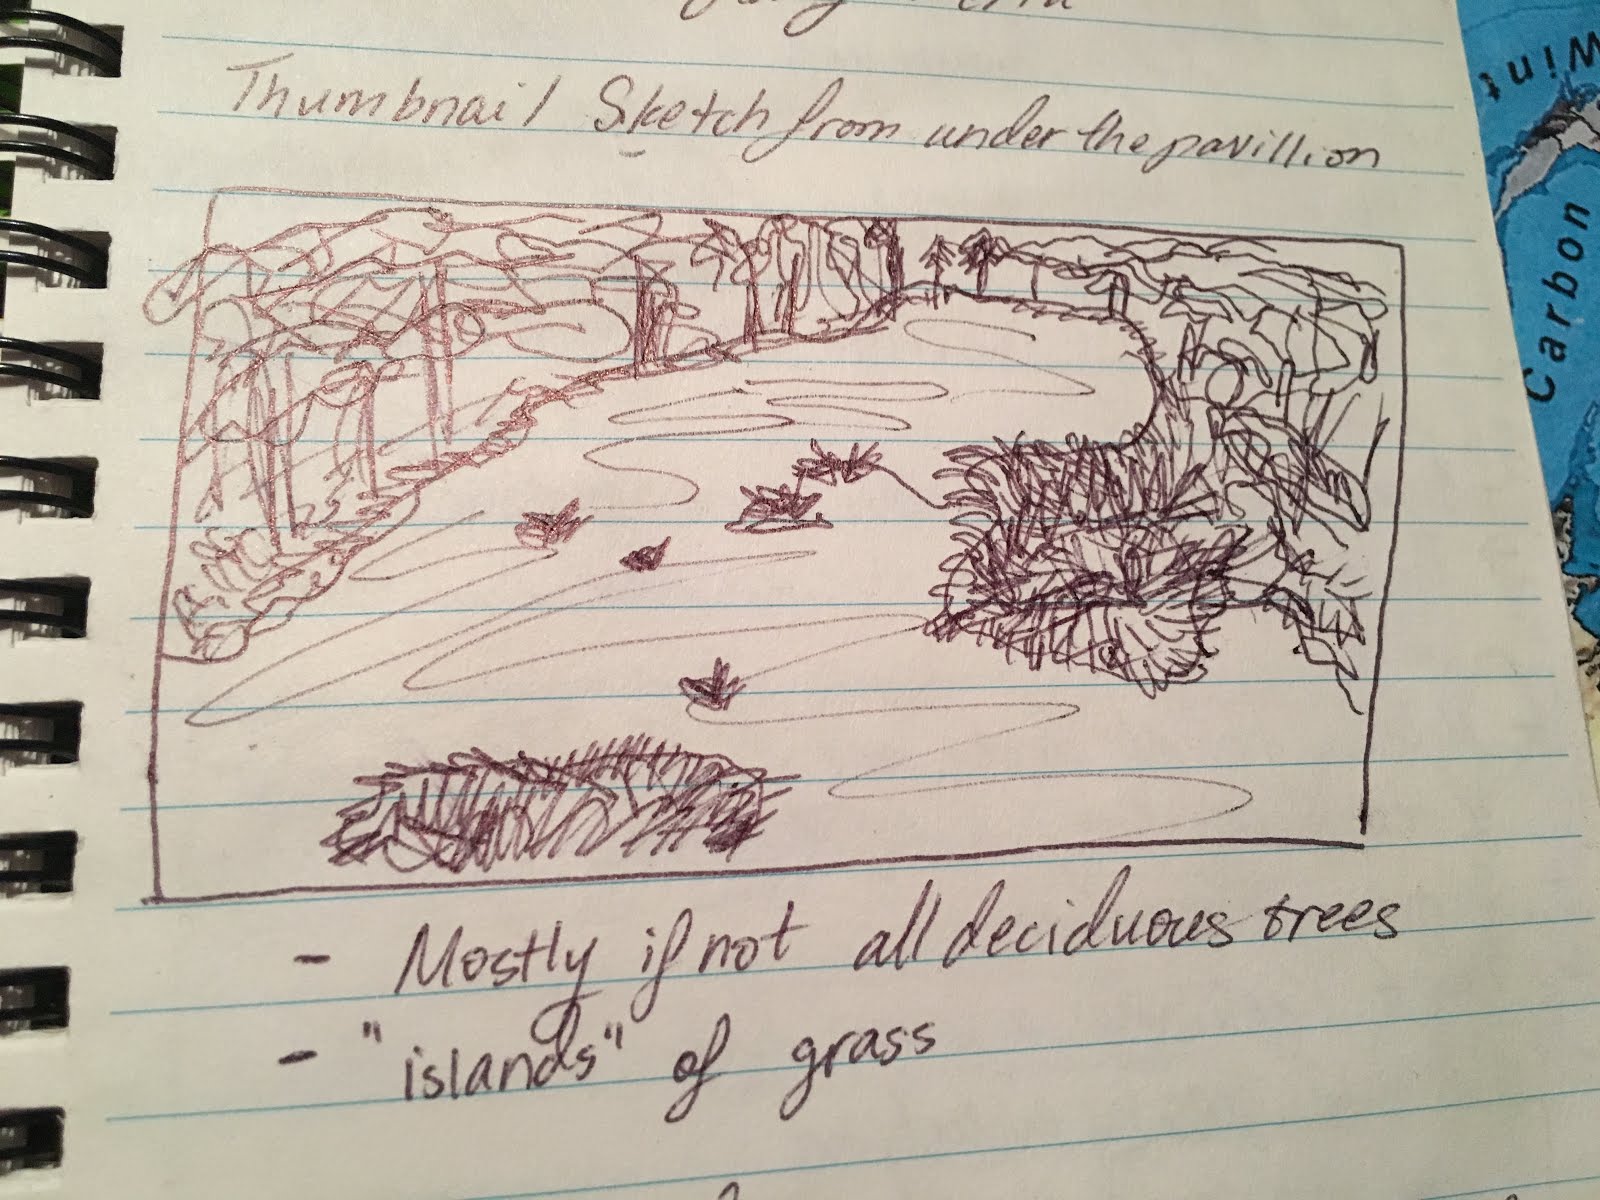 Thumbnail Sketch from under the pavillion
- Mostly if not all deciduous trees
- "islands" of grass
Wint
Carbon